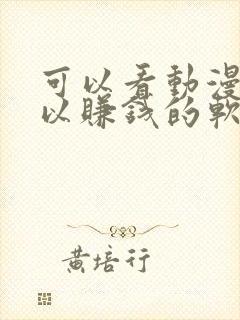 可以看動漫
以賺錢的軟
黃培行